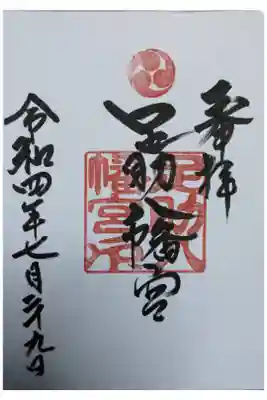 奉拝
足助八幡宮
令和四年七月二十九日